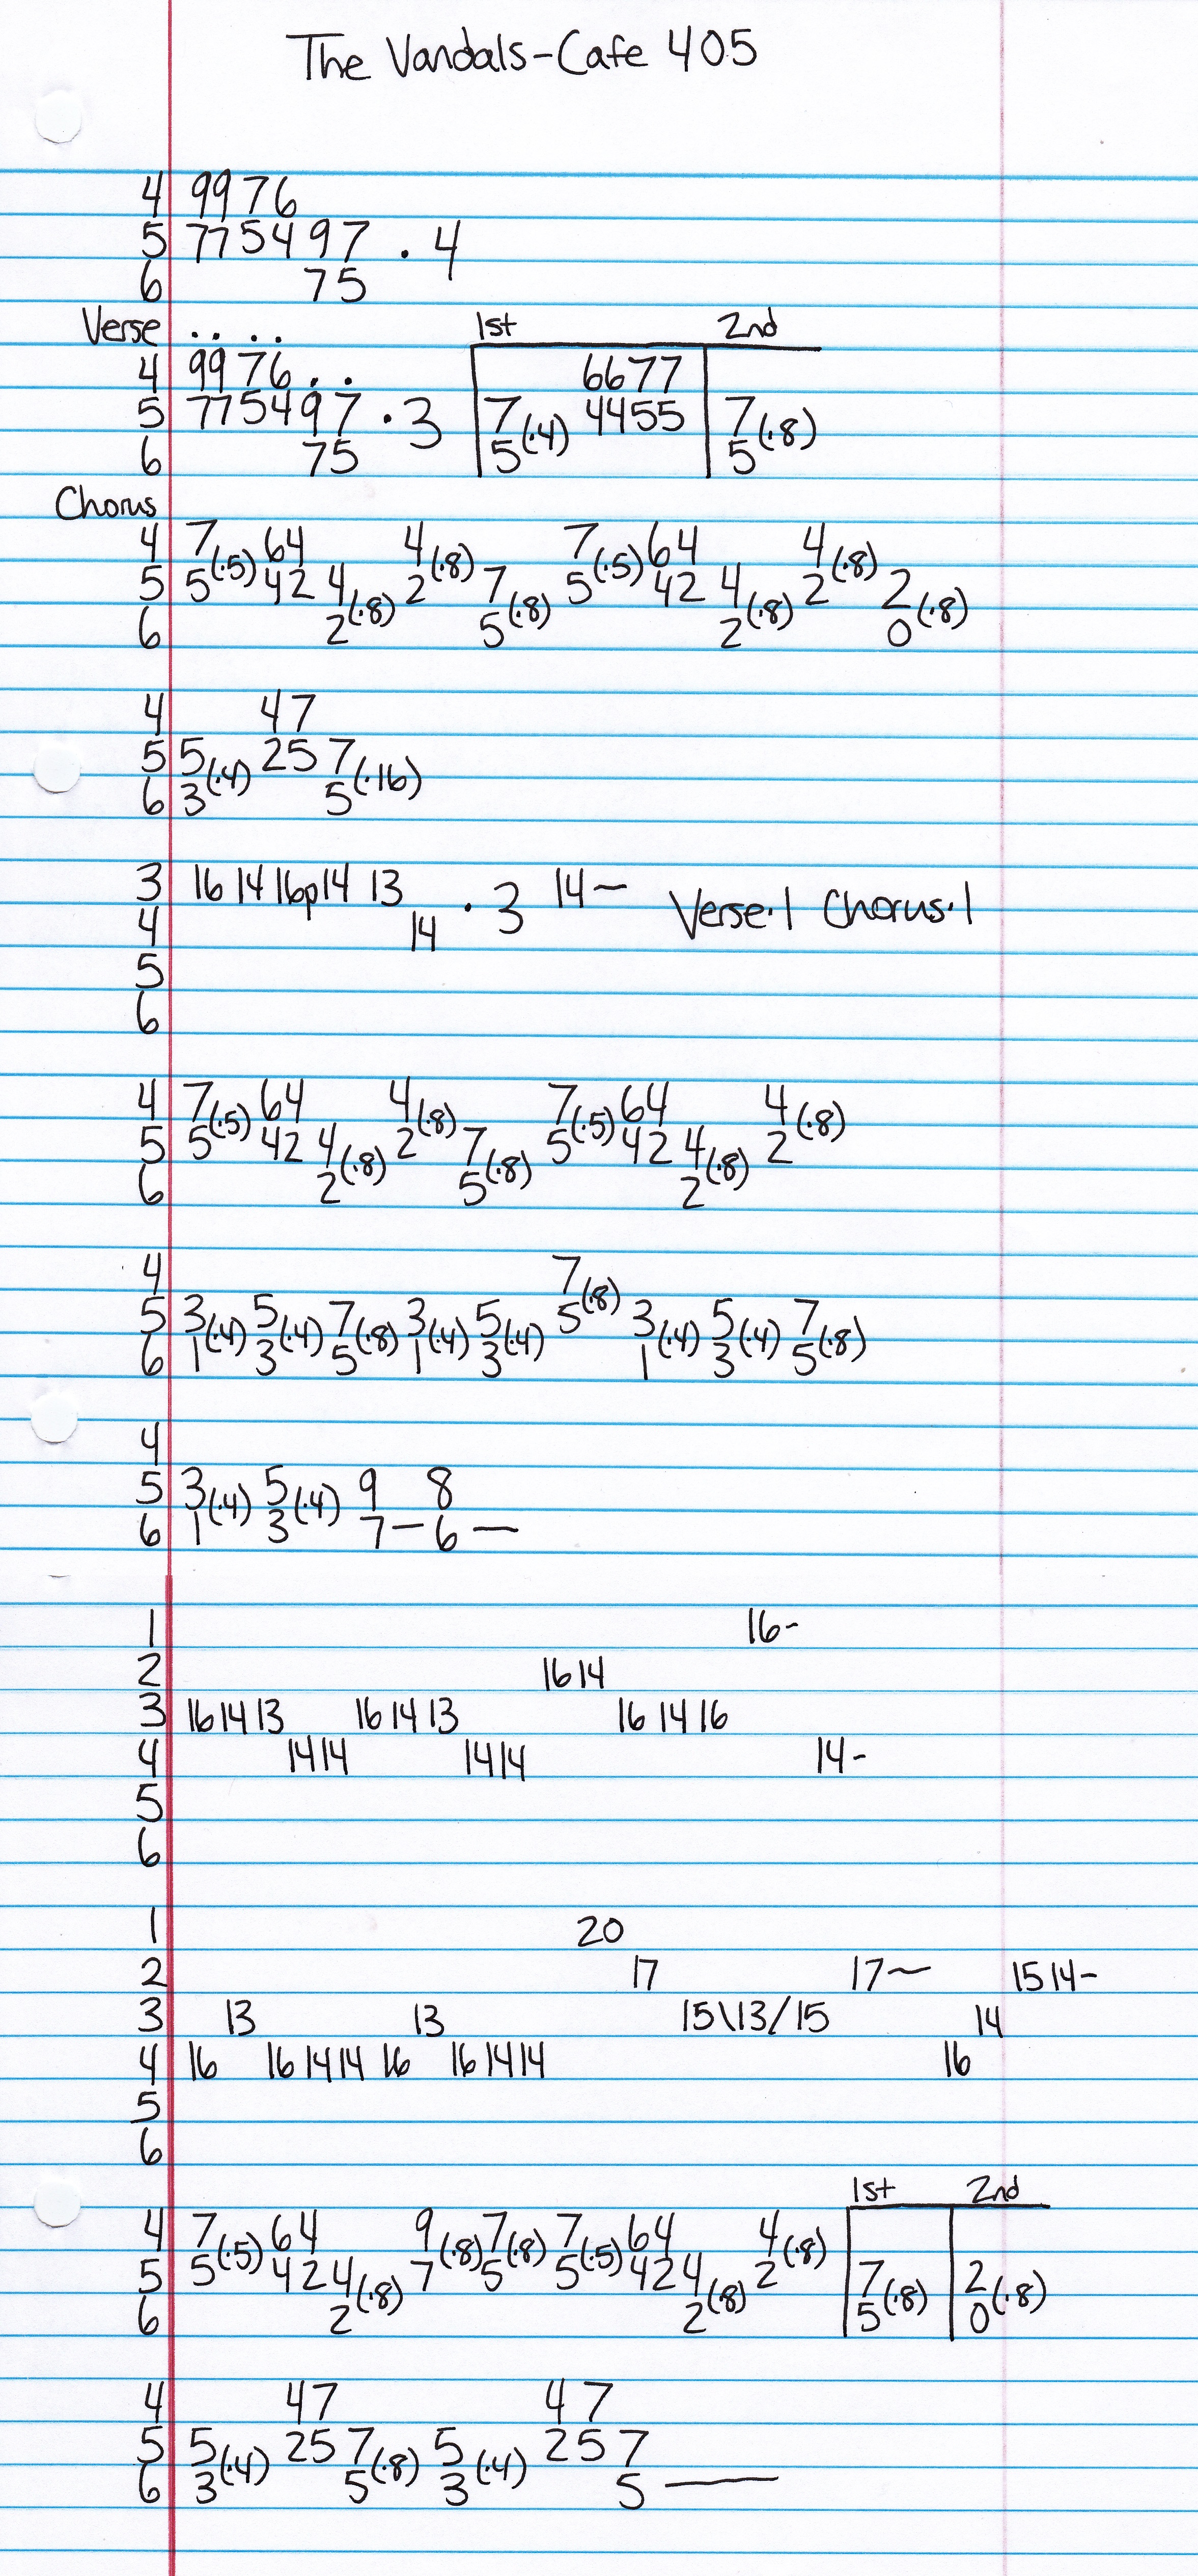 The Vandals-Cafe 405
4 9976
5 775497 . 4
6 75
Verse . . . . 1st 2nd
4 9976 . . 6677
5 775497 . 3 7(.4) 4455 7(.8)
6 75 5 5
Chorus
4 7(.5) 64 4(.8) 7(.5) 64 4(.8)
5 5 42 4(.8) 2 7(.8) 5 42 4(.8) 2 2(.8)
6 2 5 2 0
4 47
5 5(.4) 25 7(.16)
6 3 5
3 16 14 16p14 13 . 3 14~ Verse.1 Chorus.1
4 14
5
6
4 7(.5) 64 4(.8) 7(.5) 64 4(.8)
5 5 42 4(.8) 2 7(.8) 5 42 4(.8) 2
6 2 5 2
4 7(.8)
5 3(.4) 5(.4) 7(.8) 3(.4) 5(.4) 5 3(.4) 5(.4) 7(.8)
6 1 3 5 1 3 1 3 5
4
5 3(.4) 5(.4) 9 8
6 1 3 7 — 6 —
1 16-
2 16 14
3 16 14 13 16 14 13 16 14 16
4 14 14 14 14 14-
5
6
1 20
2 17 17~ 15 14-
3 13 13 15\13/15 14
4 16 16 14 14 16 16 14 14 16
5
6
1st 2nd
4 7(.5) 64 9(.8) 7(.8) 7(.5) 64 4(.8)
5 5 42 4(.8) 7 5 5 42 4(.8) 2 7(.8) 2(.8)
6 2 2 5 0
4 47 47
5 5(.4) 25 7(.8) 5(.4) 25 7
6 3 5 3 5 —